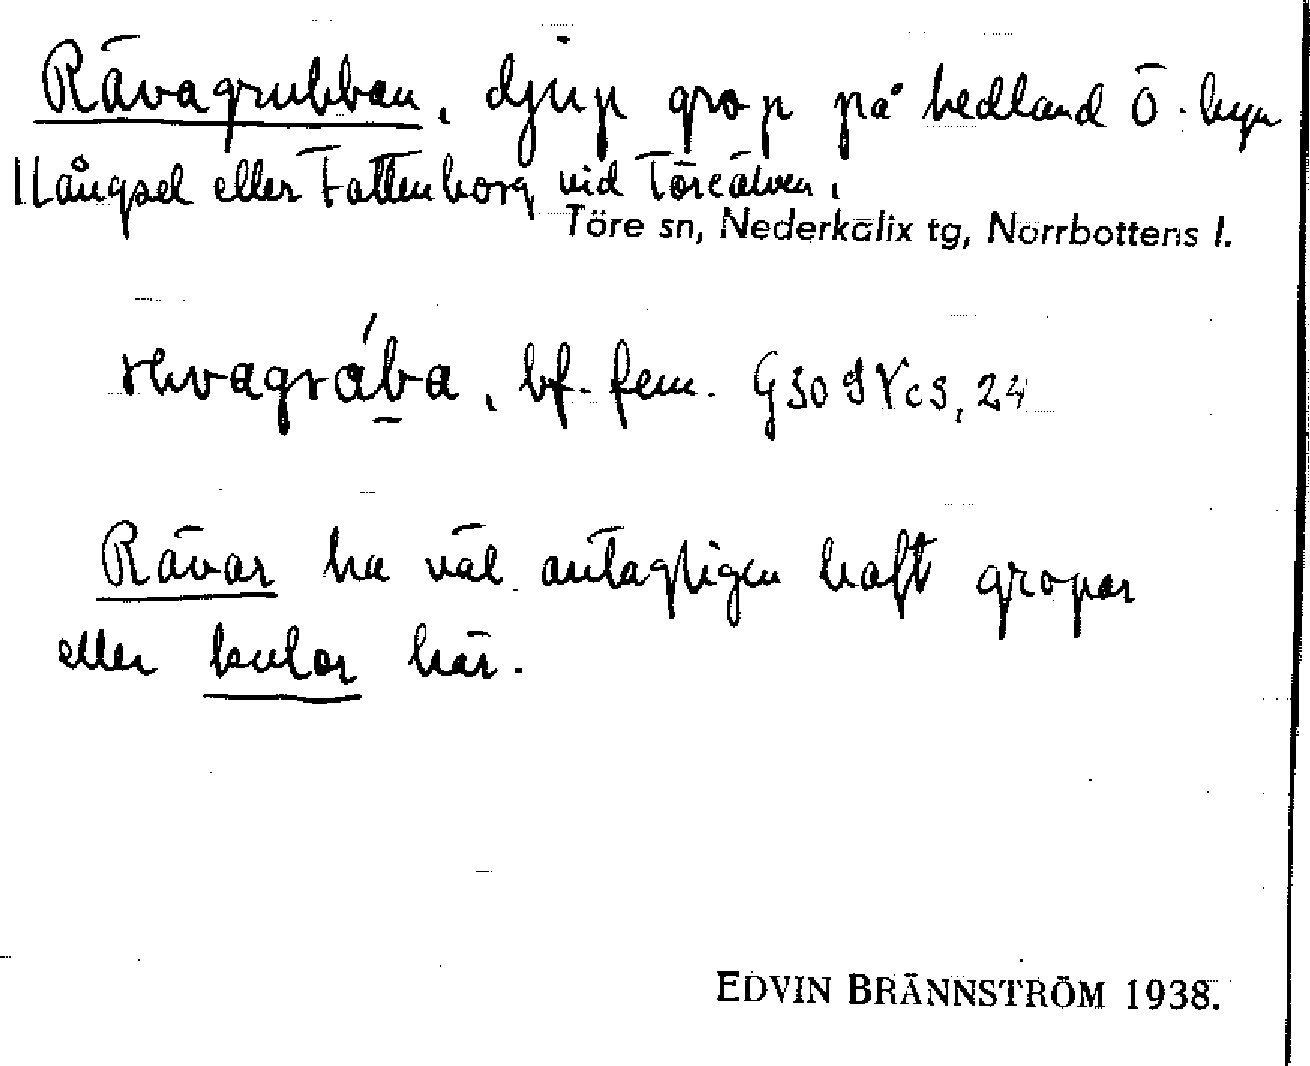 Rävagrubban, djup grop på hedland Ö. byn
Långsel eller Fattenborg vid Töreälven.
Töre sn, Nederkalix tg, Norrbottens l.
bf. fem. 24
Rävar ha väl antagligen haft gropar
eller kulor här.
EDVIN BRÄNNSTRÖM 1938.